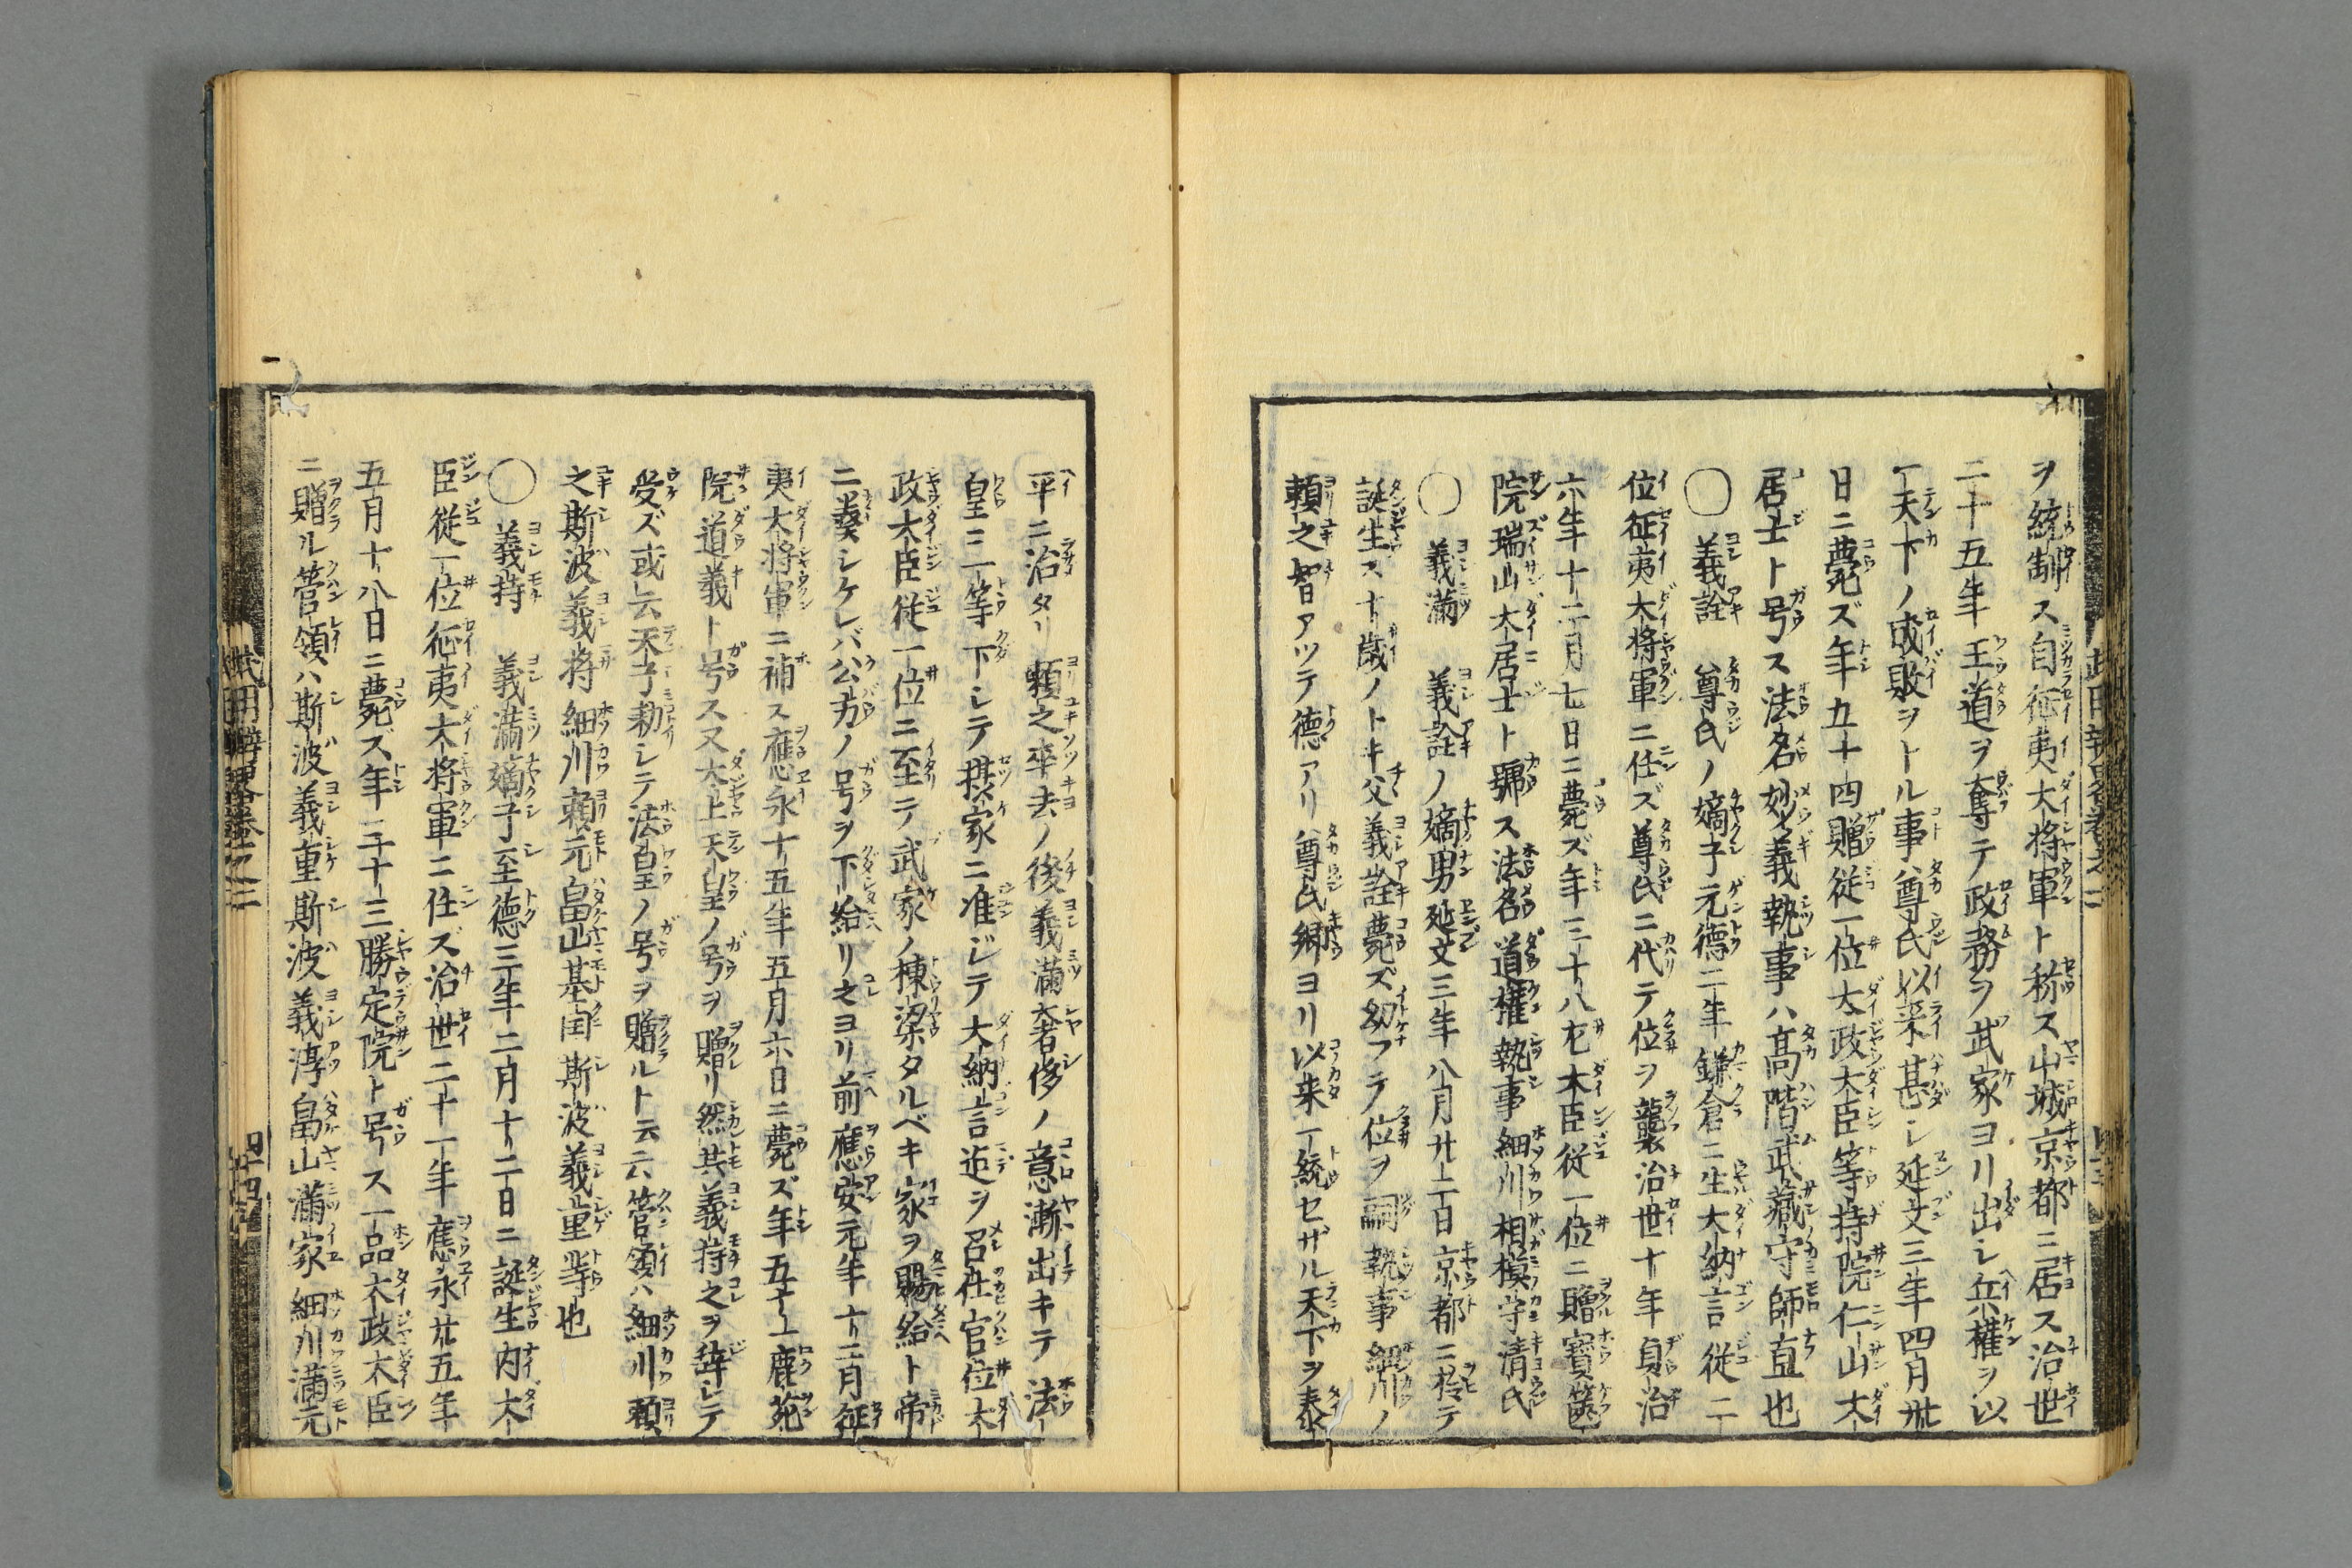 ヲ統制ス自征夷大将軍ト称ス山城京都ニ居ス治世
二十五年王道ヲ奪テ政務ヲ武家ヨリ出シ兵權ヲ以
一天下ノ成敗ヲトル事尊氏以来甚シ延文三年四月卅
日ニ薨ズ年五十四贈従一位大政大臣等持院仁山大
居士ト号ス法名妙義執事ハ高階武藏守師直也
○義詮 尊氏ノ嫡子元德二年鎌倉ニ生大納言従二
位征夷大将軍ニ任ズ尊氏ニ代テ位ヲ襲治世十年貞治
六年十二月七日ニ薨ズ年三十八左大臣従一位ニ贈寳篋
院瑞山大居士ト號ス法名道權執事細川相模守清氏
○義満 義詮ノ嫡男延文三年八月廿二日京都ニ於テ
誕生ス十歳ノトキ父義詮薨ズ幼フテ位ヲ嗣執事細川ノ
頼之智アツテ德アリ尊氏卿ヨリ以来一統セザル天下ヲ泰
平ニ治タリ頼之卒去ノ後義満奢侈ノ意漸出キテ法
皇ニ一等下シテ摂家ニ准ジテ大納言迄ヲ召仕官位太
政大臣従一位ニ至テ武家ノ棟梁タルベキ家ヲ賜給ト帝
ニ奏シケレバ公方ノ号ヲ下給リ之ヨリ前應安元年十二月征
夷大将軍ニ補ス應永十五年五月六日ニ薨ズ年五十一鹿苑
院道義ト号ス又大上天皇ノ号ヲ贈リ然共義持之ヲ辞シテ
受ズ或云天子勅シテ法皇ノ号ヲ贈ルト云云管領ハ細川頼
之斯波義将細川頼元畠山基国斯波義重等也
○義持 義満嫡子至德三年二月十二日ニ誕生内大
臣従一位征夷大将軍ニ任ズ治世二十一年應永廿五年
五月十八日ニ薨ズ年三十三勝定院ト号ス一品太政大臣
ニ贈ル管領ハ斯波義重斯波義淳畠山満家細川満元
武田 卷之二
四十四